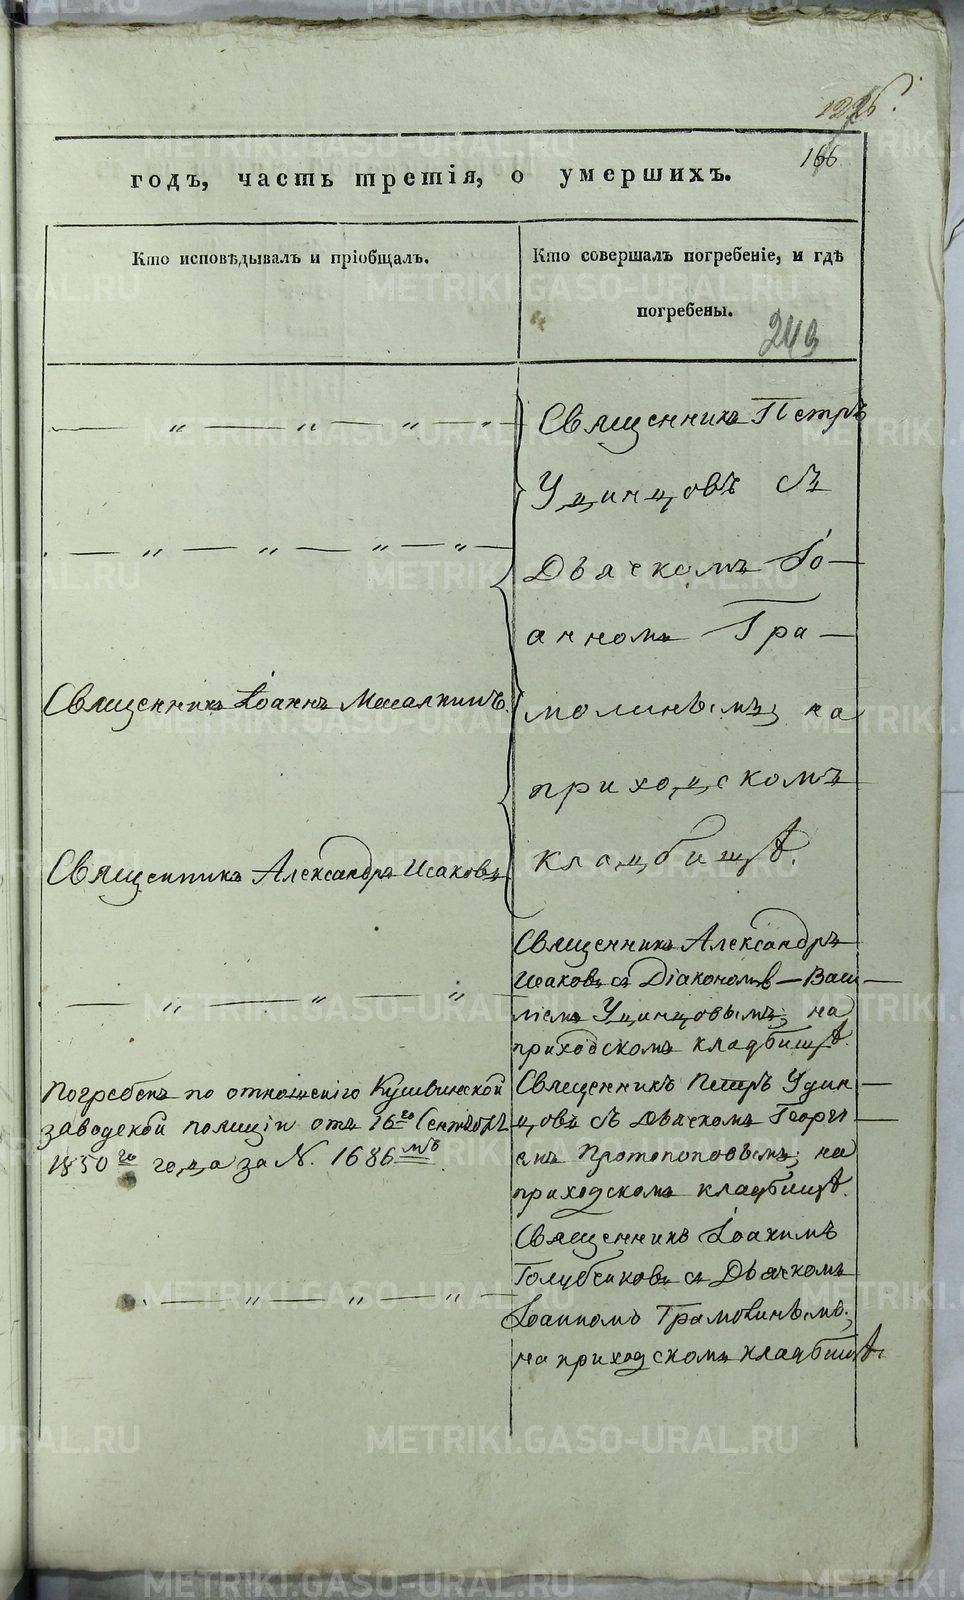 166
годъ, часть третія, о умершихъ.
Кто исповѣдывалъ и пріобщалъ.
Кто совершалъ погребеніе, и гдѣ
погребены.
249
— „ — „ — „ — „
Священникъ Петръ
Удинцовъ съ
— „ — „ — „ — „ —
Дьячкомъ Іо—
анномъ Гра—
Священникъ Іоаннъ
молинымъ; на
приходскомъ
Священникъ Александръ Исаковъ
кладбищѣ.
Священникъ Александръ
Исаковъ съ Діакономъ — Васи—
— „ — „ — „ —
ліемъ Удинцовымъ; на
приходскомъ кладбищѣ.
Погребенъ по отношенію Кушвинской
заводской полиціи отъ 16го Сентября
1850го года за N. 1686мъ.
Священникъ Петръ Удин—
цовъ съ Дьячкомъ Георгі—
емъ Протопоповымъ; на
приходскомъ кладбищѣ.
Священникъ Іоакимъ
Голубчиковъ съ Дьячкомъ
— „ — „ — „ —
Іоанномъ Грамолинымъ;
на приходскомъ кладбищѣ.
METRIKI.GASO-URAL.RU